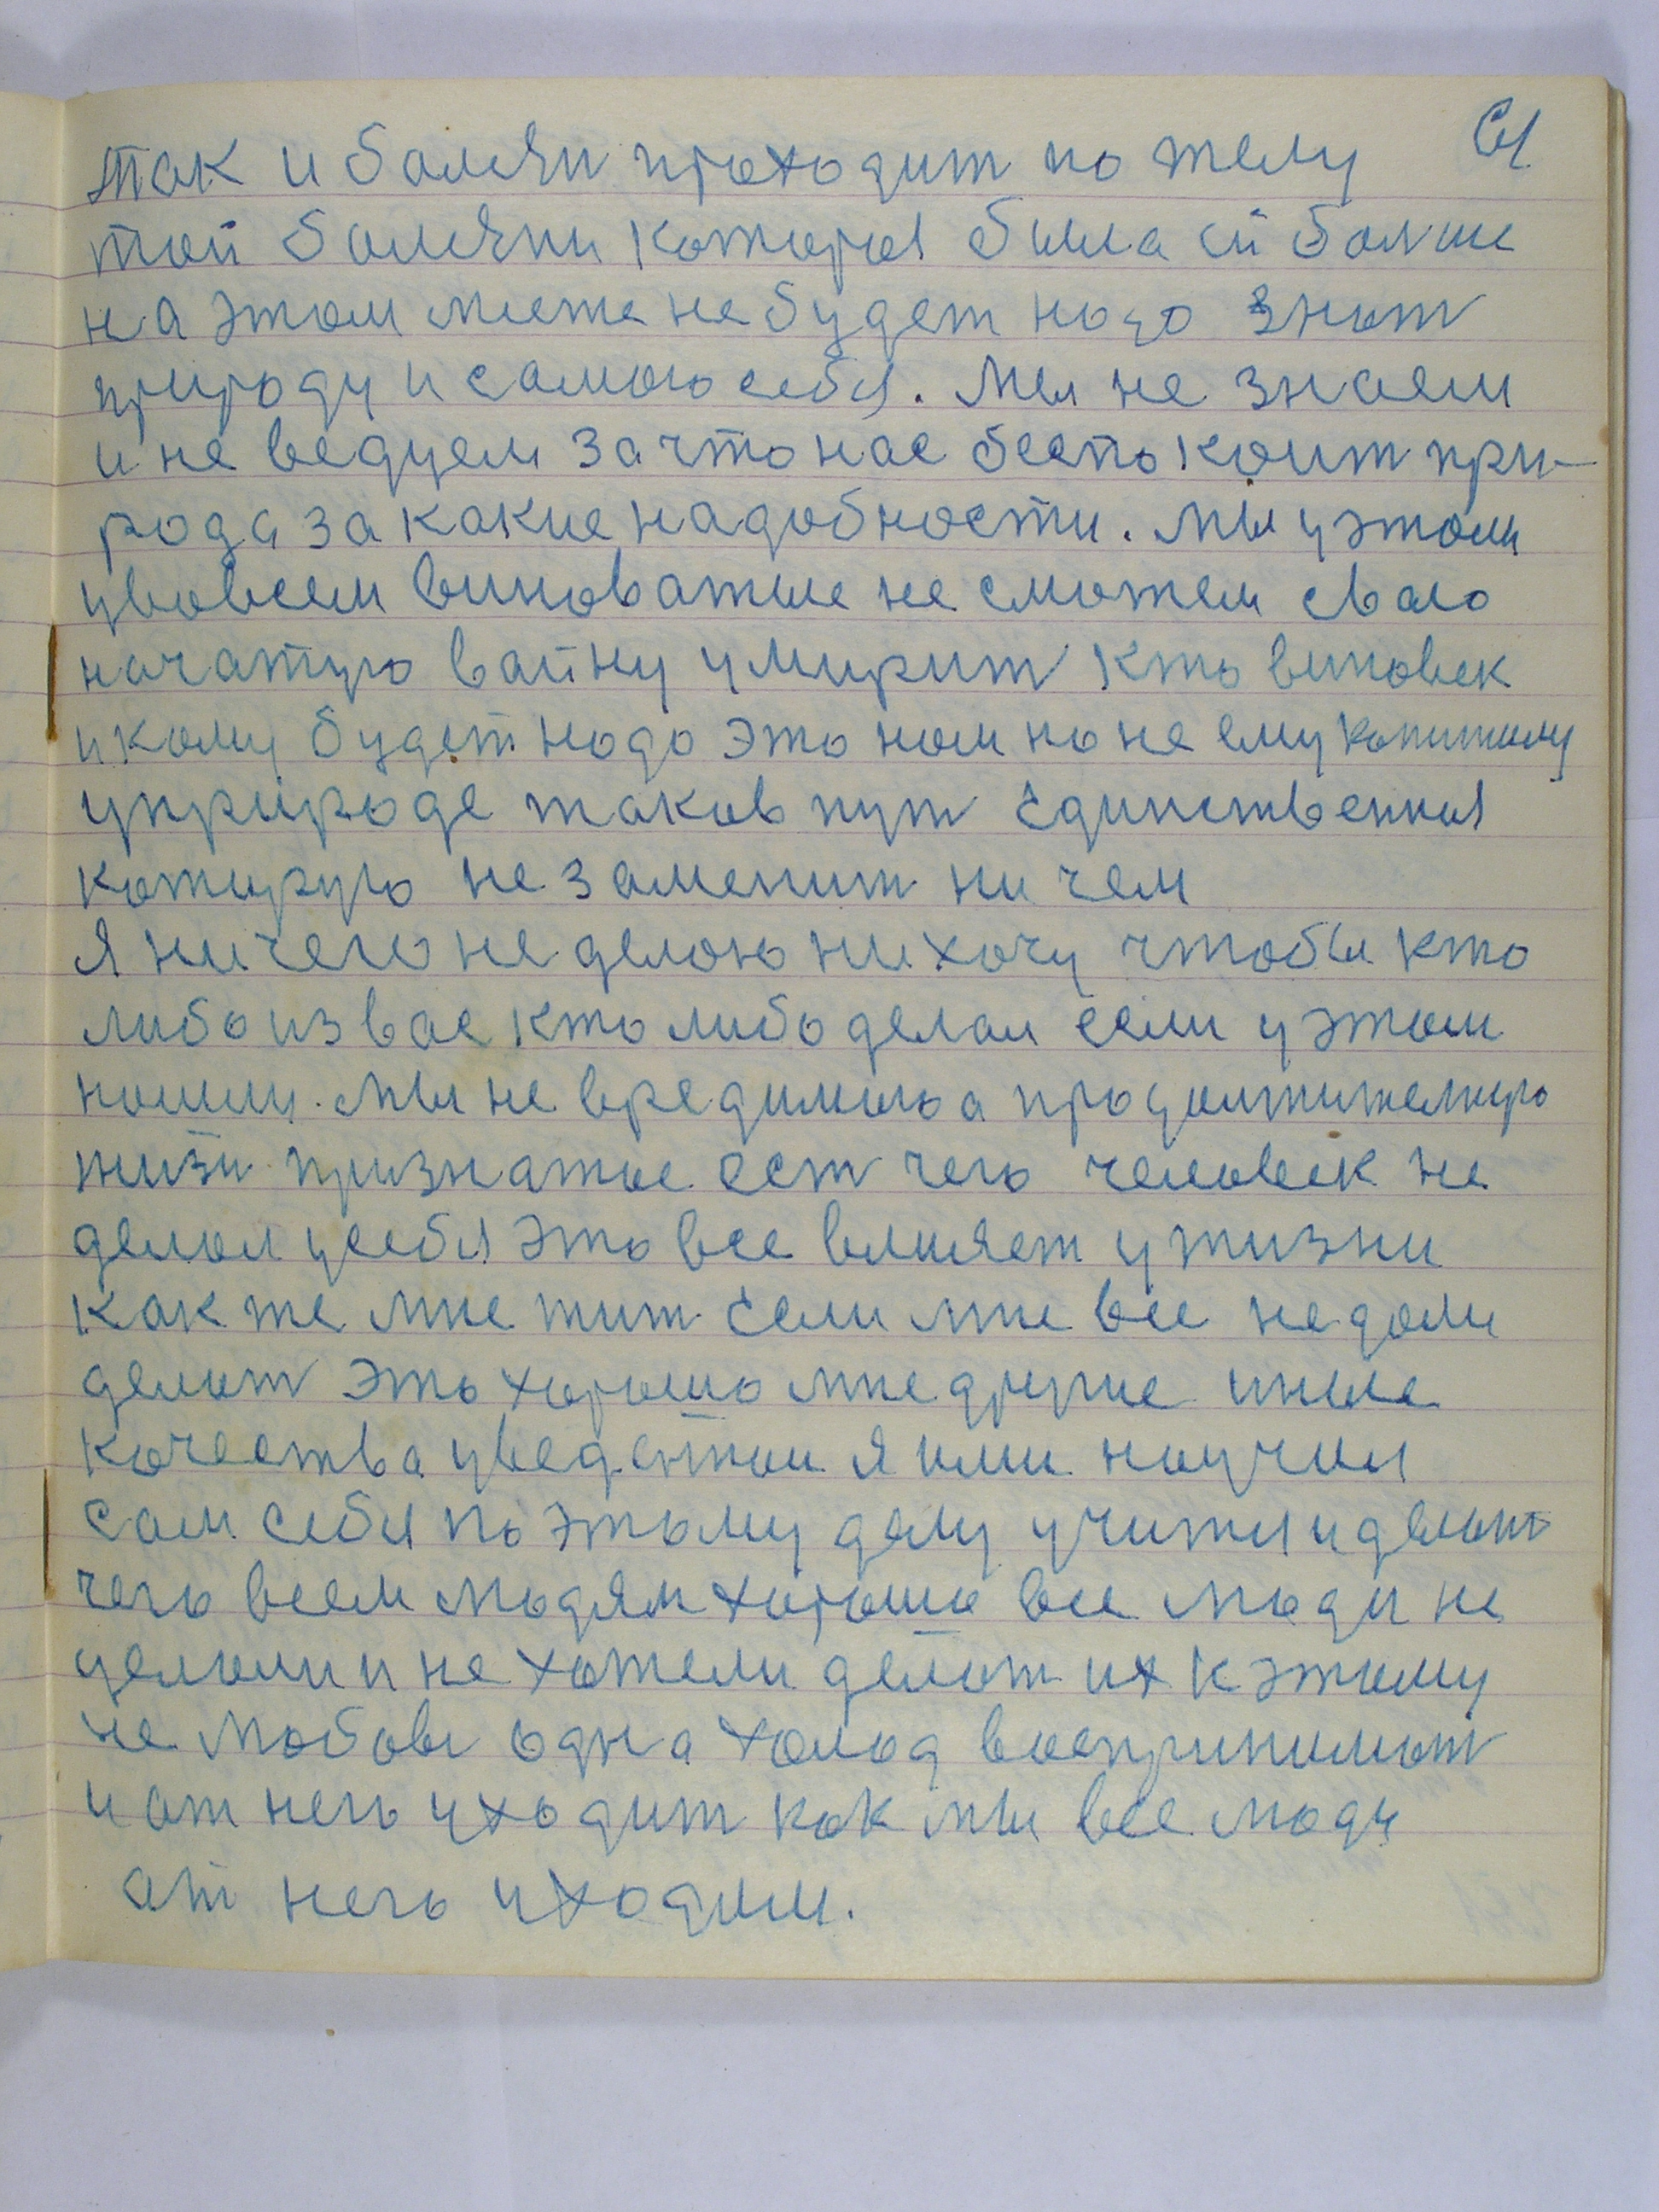 так и болячи проходит по телу
той болячки которая была ей больше
на этом месте не будет надо знат
природу и самого себя. Мы не знаем
и не ведуем за что нас беспокоит при-
рода за какие надобности. Мы у этом
увовсем виноватые не сможем сваю
начатую вайну умирит кто виновек
и кому будет надо это нам но не ему
уприроде таков пут единственная
которую не заменит ни чем
Я ничего не делаю ни хочу чтобы кто
либо из вас кто либо делал если у этом
пошли. Мы не вредимыю а
жизи признатое ест чего человек не
делал усебя это все влияет у жизни
как же мне жит если мне все не дали
делат это хорошо мне другие иные
качества я ими научил
сам себя по этому делу учится и делат
чего всем людям хорошо все люди не
делали и не хотели делат их к этому
не любовь одна холод воспринимат
и от него уходит как мы все люди
от него уходим.